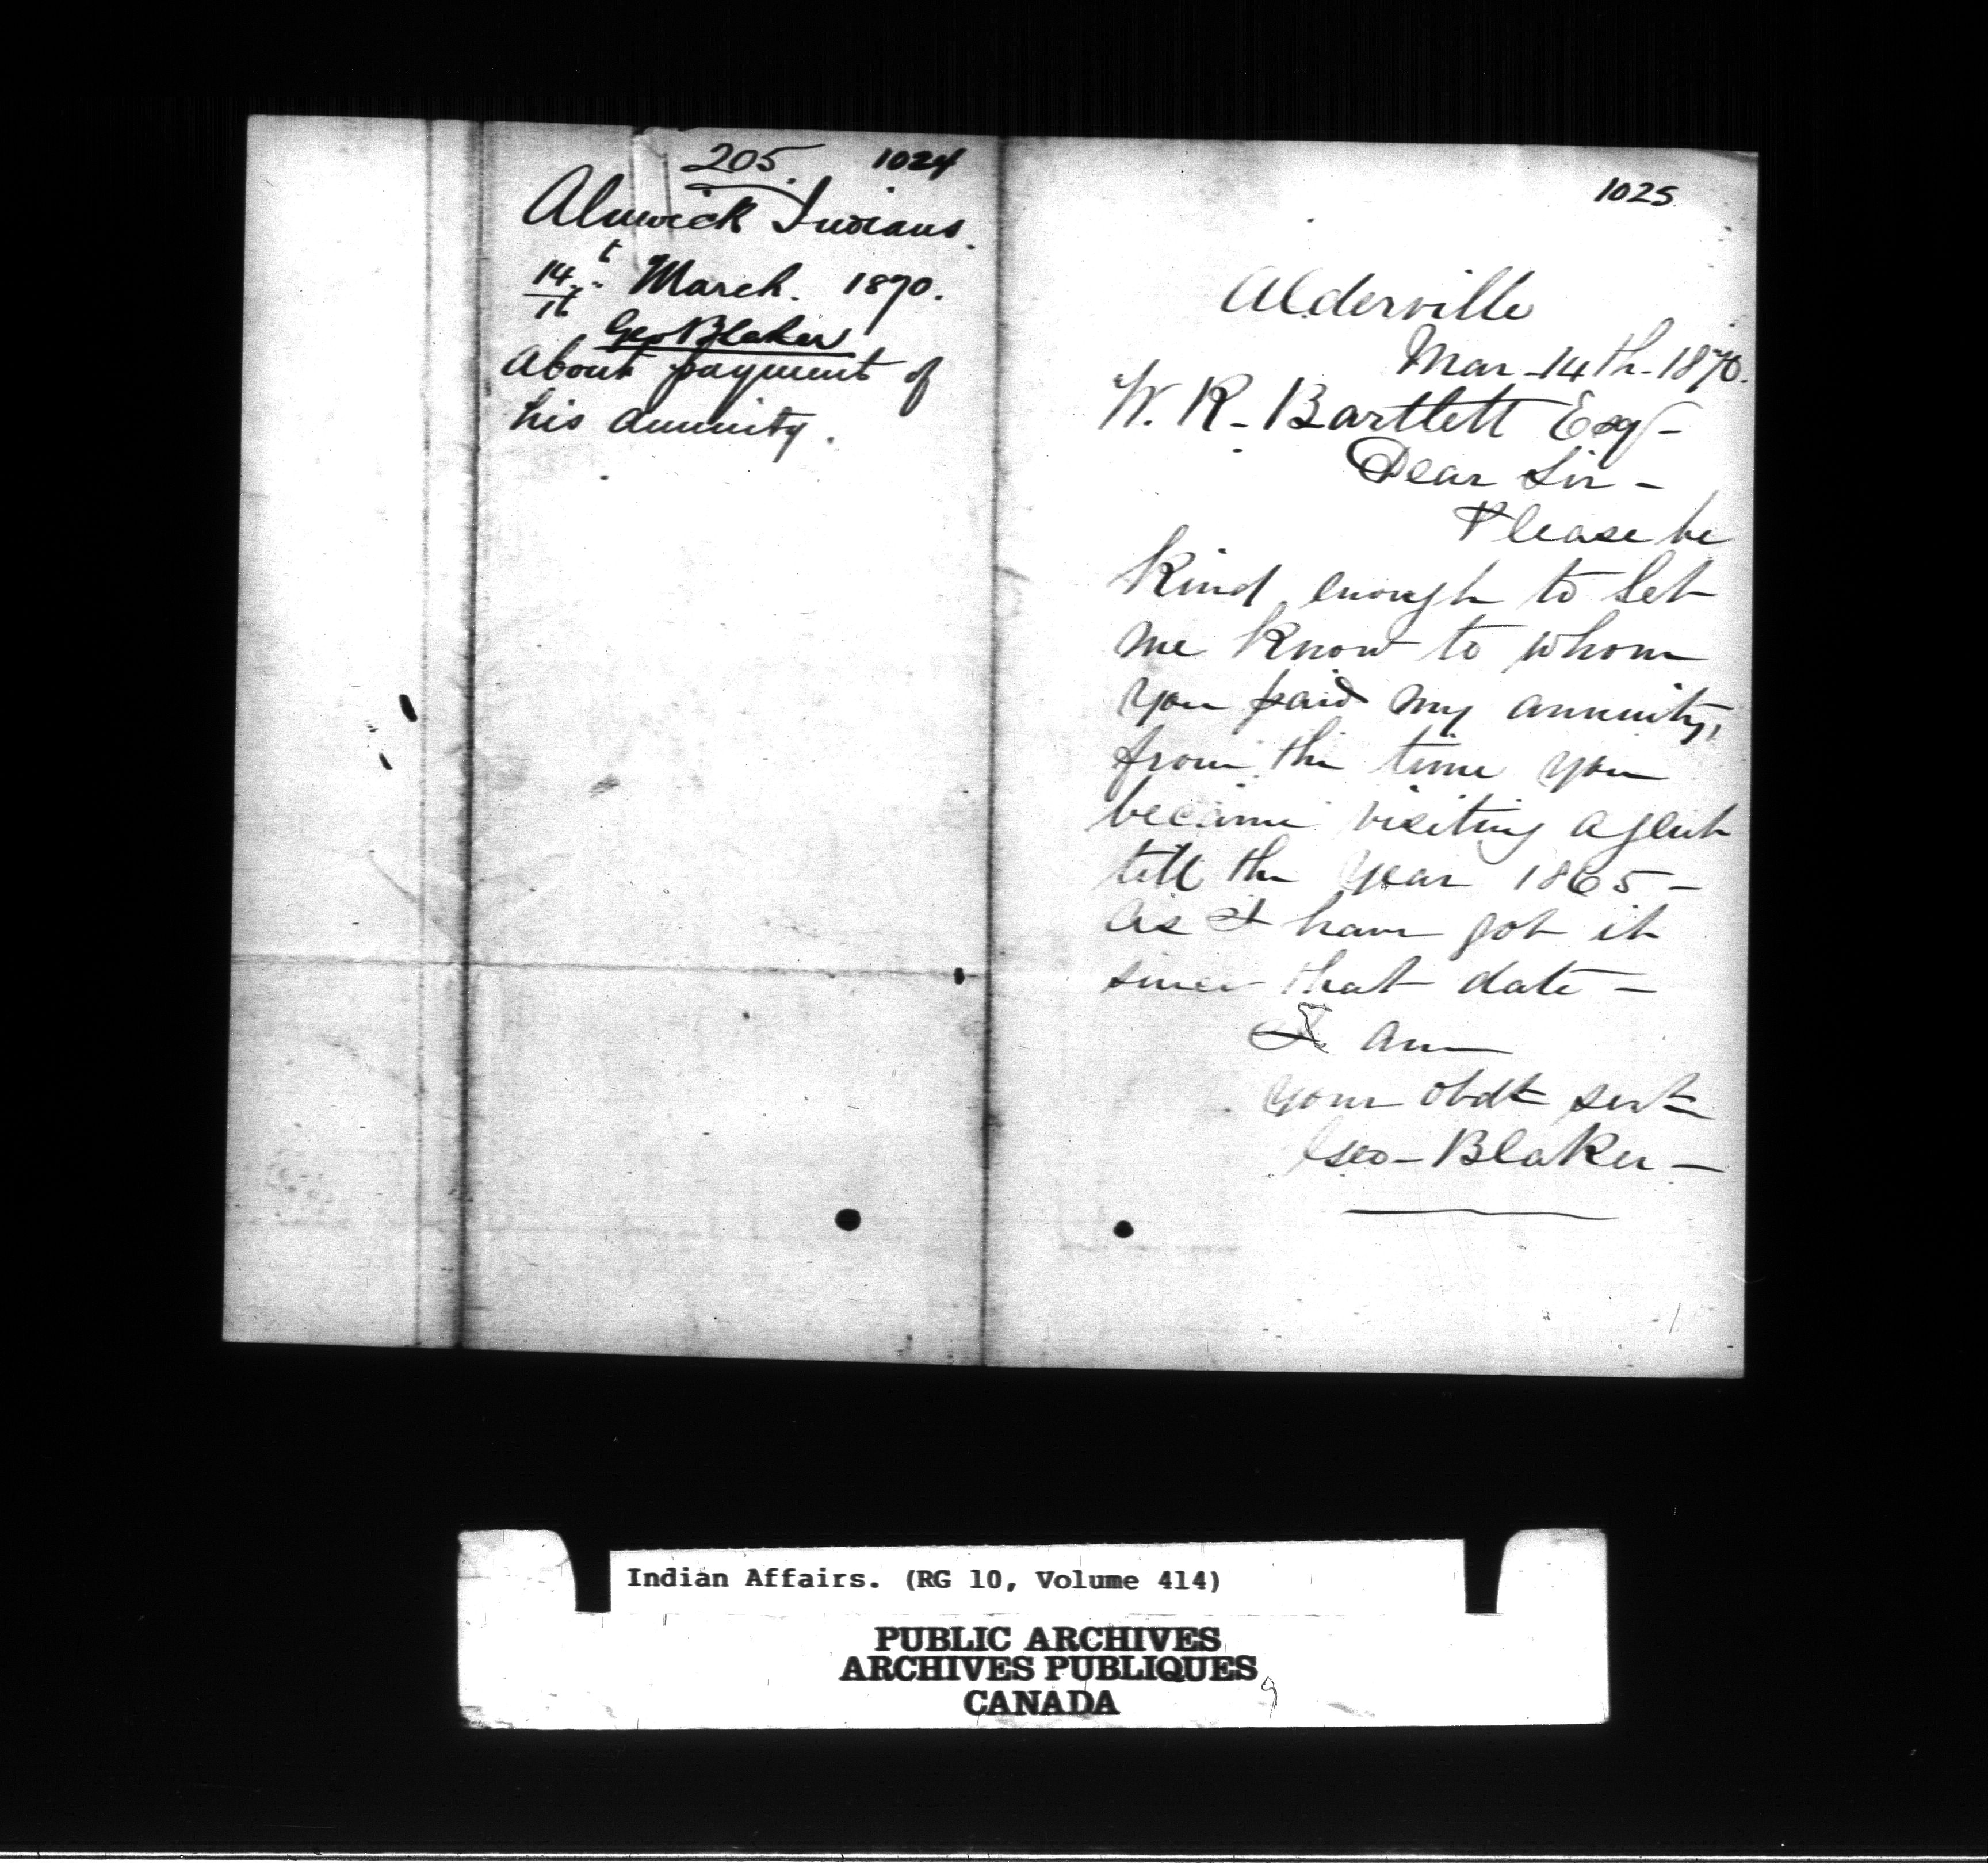 205. 1024
Alnwick Indians.
14t March. 1870.
16
Geo Blaker
About payment of
his annuity.
1025
Alderville
Mar-14th-1870.
W. R. Bartlett Esq-
Dear Sir -
Please be
kind enough to let
me know to whom
you paid my annuity,
from the time you
became visiting agent
till the year 1865 -
as I have got it
since that date -
I am
your obdt servt
Geo - Blaker -
Indian Affairs. (RG 10, Volume 414)
PUBLIC ARCHIVES
ARCHIVES PUBLIQUES
CANADA